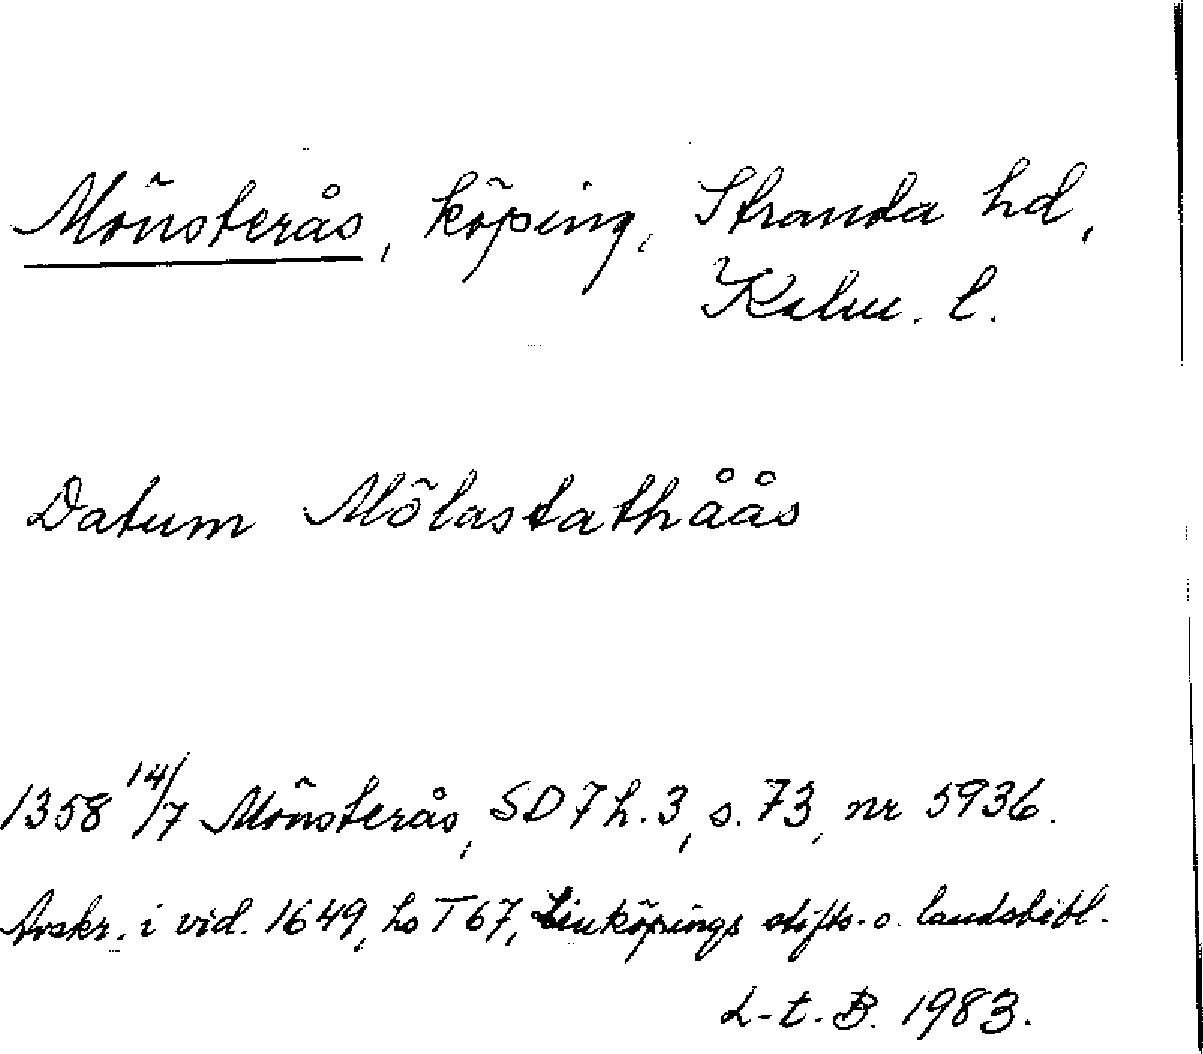 Mönsterås, köping, Stranda hd,
Kalm. l.
Datum Mölastathåås
1358 14/7 Mönsterås, SD 7 h. 3, s. 73, nr 5936.
Avskr. i vid. 1649, hs T 67, Linköpings stifts- o. landsbibl.
L-t. B. 1983.